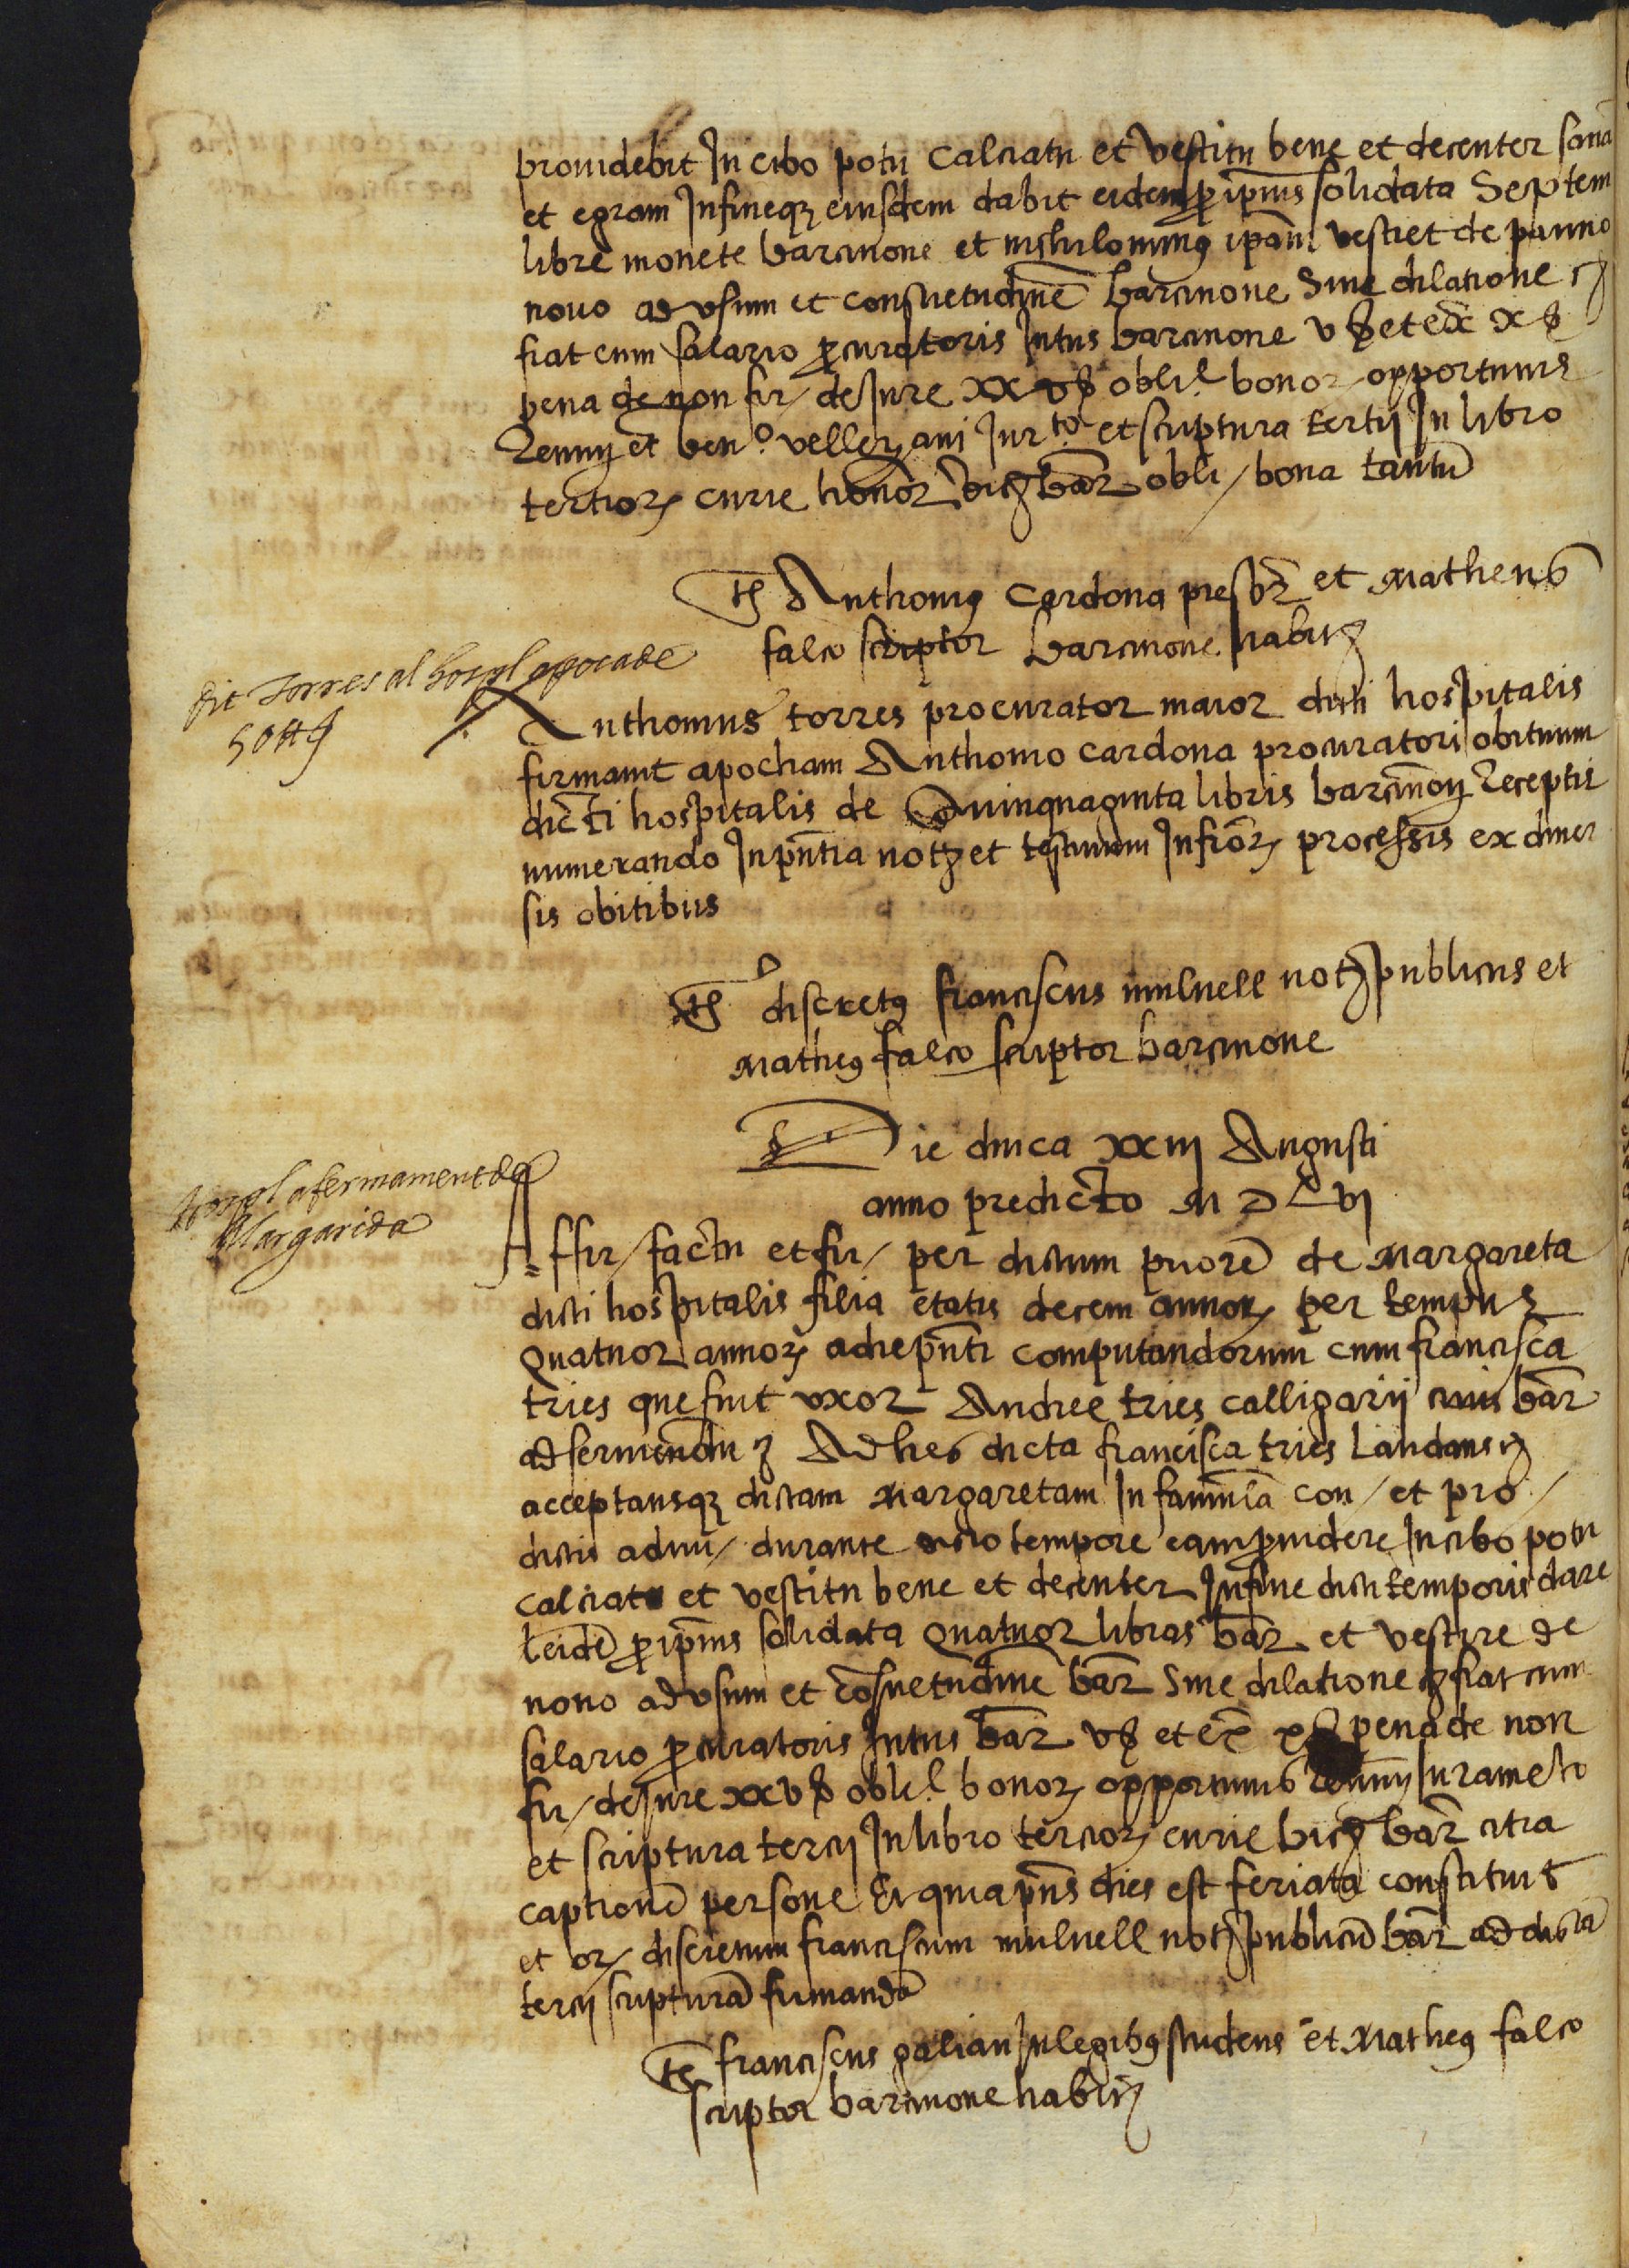 prouidebit In cibo potu Calciatu et vestitu bene et decenter sanã
et egram Infineqȝ eiusdem dabit eidem ꝑ ip̃ius solidata Septem
libre monete barcinone et nichilominꝰ ip̃am vestiet de panno
nouo ad vsum et Consuetudinẽ barcinone Sine dilatione ⁊ȝ
fiat cum salario ꝓcuratoris Intus barcinone v ẜ et ex̃ x ẜ
pena de non fir/ de Jure xx v ẜ obli.l bonoꝝ opportunis
Renuỹ et ben.º velleyani Jur.to et scriptura tertij In libro
tertioꝝ curie honoꝝ vic̃ȝ bar̃ obli/ bona tantũ
Tȝ Anthoniꝰ Cardona presbr̃ et Matheus
falco scriptor barcinone habitȝ
dit Torres al hospl apoca de
50 ₶ ẜ
Anthonius torres procurator maior dicti hospitalis
firmauit apocham Anthonio cardona procuratori obituum
dicti hospitalis de Quinquaginta libris barcinonȝ Receptis
numerando In pñtia notȝ et testium Infrȏꝝ processis ex diuer
sis obitibus
Tȝ discretꝰ franciscus mulnell notȝ publicus et
Matheꝰ falco scriptor barcinone
Die dnica xxiij Augusti
anno predicto M D L vj
Hospl afermament de
Margarida
Affir/ factũ et fir/ per dictum priorẽ de Margareta
dicti hospitalis filia etatis decem annoꝝ per tempus
Quatuor annoꝝ adiepñti computandorum cum francisca
tries que fuit vxor Andree tries Calligarij ciuis bar̃
ad seruiendũ ȝ Ad hec dicta francisca tries Laudans ⁊ȝ
acceptansqȝ dictam Margaretam In famula con/ et pro/
dictis admi/ durante dicto tempore eam ꝓuidere In cibo potu
calciatu et vestitu bene et decenter In fine dicti temporis dare
eidẽ ꝑ ip̃ius solidata Quatuor libras bar̃ et vestire de
nouo ad vsum et Cõsuetudinẽ bar̃ Sine dilatione ⁊ȝ fiat cum
salario ꝓcuratoris Intus bar̃ v ẜ et ex̃ x ẜ pena de non
fir/ de Jure xx v ẜ obli.l bonoꝝ opportunis Renuỹ Jurameto
et scriptura tercij In libro tercioꝝ curie vicȝ bar̃ citra
captionẽ persone Et quia pñs dies est feriata constituit
et oꝝ discretum franciscum mulnell notȝ publicũ bar̃ ad dictã
tercij scripturã firmandã
Tȝ franciscus galian In legibꝰ studens et Matheꝰ falco
scriptor barcinone habitȝ